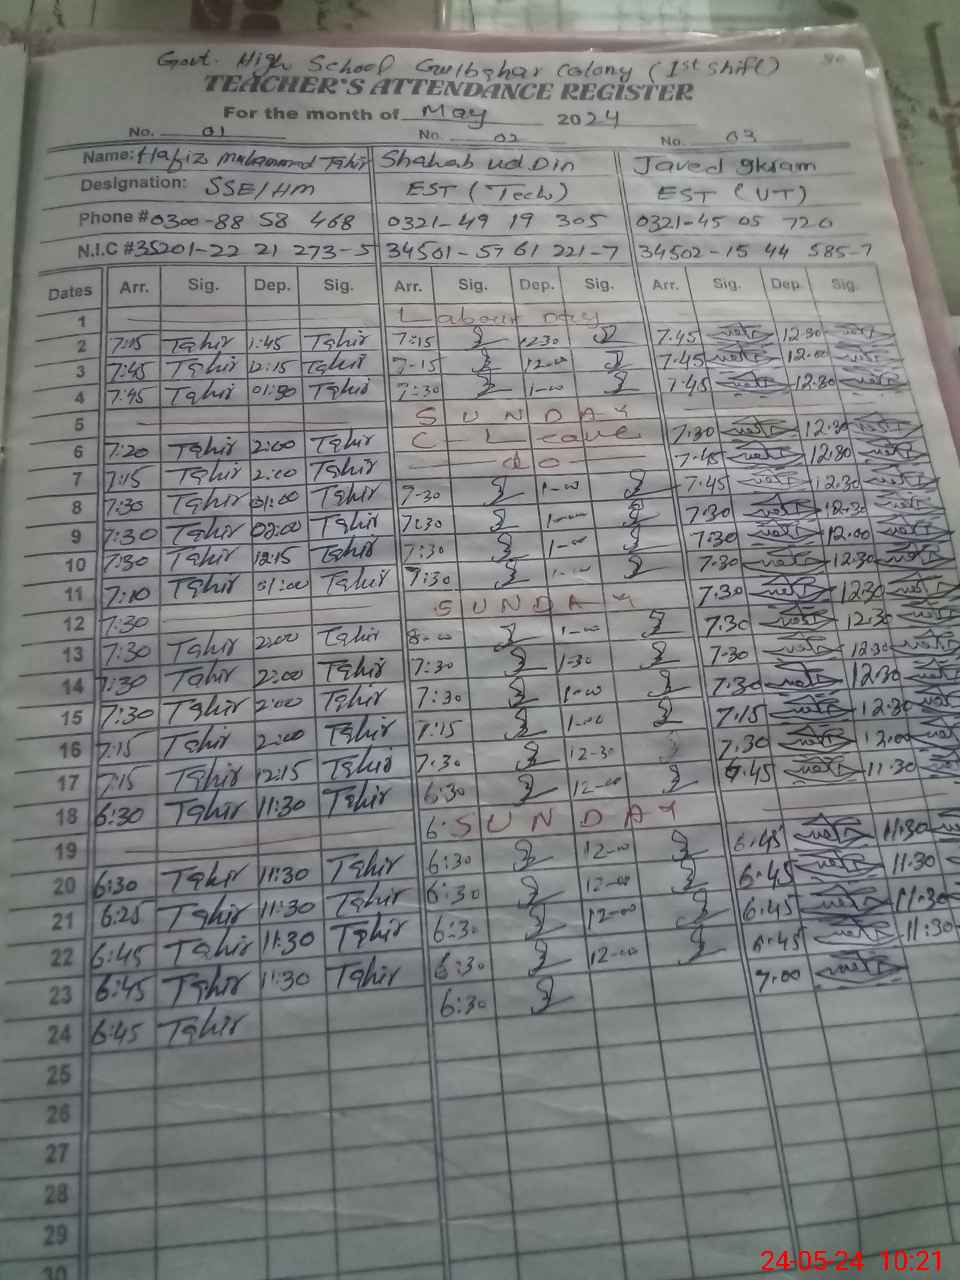 Govt. High School Gulbahar Colony (1st Shift)
TEACHER'S ATTENDANCE REGISTER
For the month of May 2024
No. 01 No. 02 No. 03
Name: Hafiz Muhammad Tahir Shahab ud Din Javed Ikram
Designation: SSE/HM EST (Tech) EST (UT)
Phone # 0300-88 58 468 0321-49 19 305 0321-45 05 720
N.I.C # 35201-22 21 273-5 34501-57 61 221-7 34502-15 44 585-7
Dates Arr. Sig. Dep. Sig. Arr. Sig. Dep. Sig. Arr. Sig. Dep. Sig.
1 Labour day
2 7:15 Tahir 1:45 Tahir 7:15 12-30 7.45 12.30
3 7:45 Tahir 12:15 Tahir 7-15 12-00 7.45 12.00
4 7:45 Tahir 01:30 Tahir 7:30 1-00 7.45 12.30
5 SUNDAY
6 7:20 Tahir 2:00 Tahir C-Leave 7.30 12.30
7 7:15 Tahir 2:00 Tahir do 7.45 12.30
8 7:30 Tahir 01:00 Tahir 7-30 1-00 7.45 12.30
9 7:30 Tahir 02:00 Tahir 7:30 1-00 7.30 12.30
10 7:30 Tahir 12:15 Tahir 7:30 1-00 7.30 12.00
11 7:10 Tahir 01:00 Tahir 7:30 1-00 7.30 12.30
12 7:30 SUNDAY
13 7:30 Tahir 2:00 Tahir 8-00 1-00 7.30 12.30
14 7:30 Tahir 2:00 Tahir 7:30 1-30 7.30 12.30
15 7:30 Tahir 2:00 Tahir 7:30 1-00 7.30 12.30
16 7:15 Tahir 2:00 Tahir 7:15 1-00 7.30 12.30
17 7:15 Tahir 12:15 Tahir 7.30 12-30 7.15 12.30
18 6:30 Tahir 11:30 Tahir 6:30 12-00 6.45 11.30
19 6: SUNDAY
20 6:30 Tahir 11:30 Tahir 6:30 12-00 6.45 11.30
21 6:25 Tahir 11:30 Tahir 6:30 12-00 6.45 11.30
22 6:45 Tahir 11:30 Tahir 6:30 12-00 6.45 11.30
23 6:45 Tahir 11:30 Tahir 6:30 12-00 6.45 11.30
24 6:45 Tahir 6:30 7.00
25
26
27
28
29
30
24-05-24 10:21